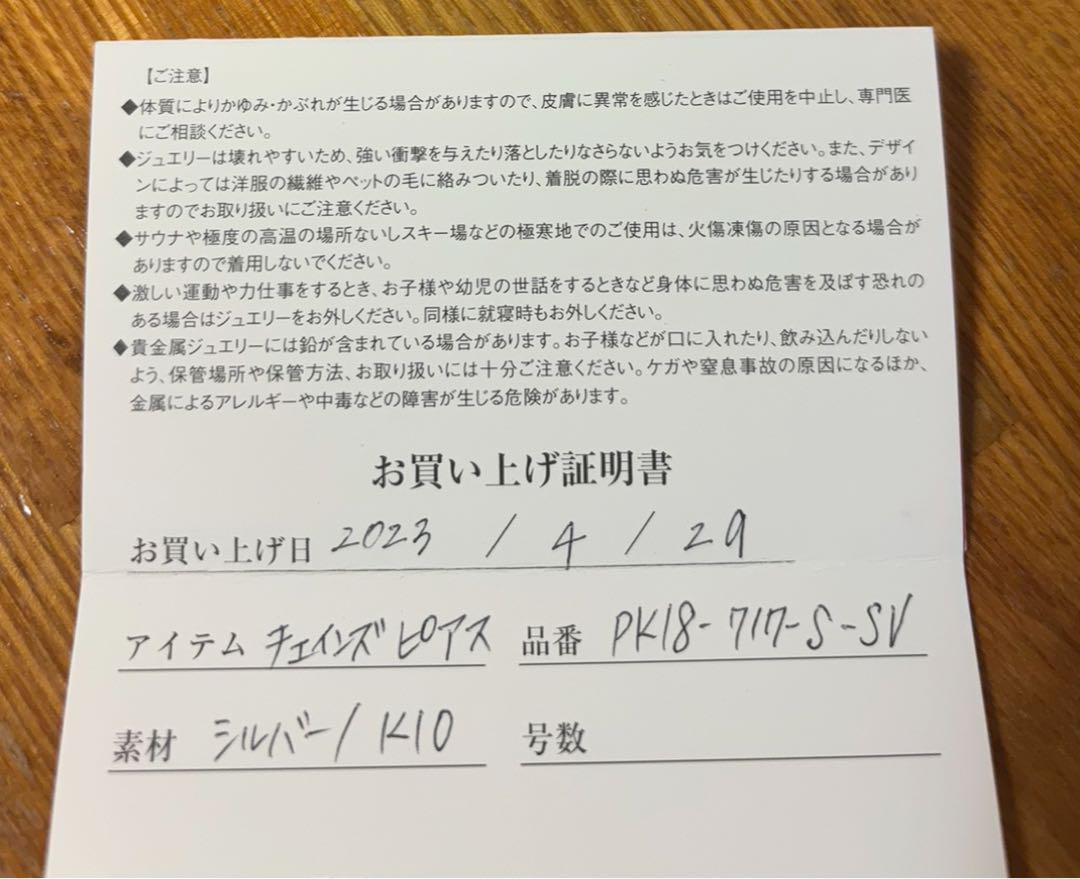 【ご注意】
◆体質によりかゆみ・かぶれが生じる場合がありますので、皮膚に異常を感じたときはご使用を中止し、専門医
にご相談ください。
◆ジュエリーは壊れやすいため、強い衝撃を与えたり落としたりなさらないようお気をつけください。また、デザイ
ンによっては洋服の繊維やペットの毛に絡みついたり、着脱の際に思わぬ危害が生じたりする場合があり
ますのでお取り扱いにご注意ください。
◆サウナや極度の高温の場所ないしスキー場などの極寒地でのご使用は、火傷凍傷の原因となる場合が
ありますので着用しないでください。
◆激しい運動や力仕事をするとき、お子様や幼児の世話をするときなど身体に思わぬ危害を及ぼす恐れの
ある場合はジュエリーをお外しください。同様に就寝時もお外しください。
◆貴金属ジュエリーには鉛が含まれている場合があります。お子様などが口に入れたり、飲み込んだりしない
よう、保管場所や保管方法、お取り扱いには十分ご注意ください。ケガや窒息事故の原因になるほか、
金属によるアレルギーや中毒などの障害が生じる危険があります。
お買い上げ証明書
お買い上げ日 2023 / 4 / 29
アイテム チェインズピアス 品番 PK18-717-S-SV
素材 シルバー/K10 号数